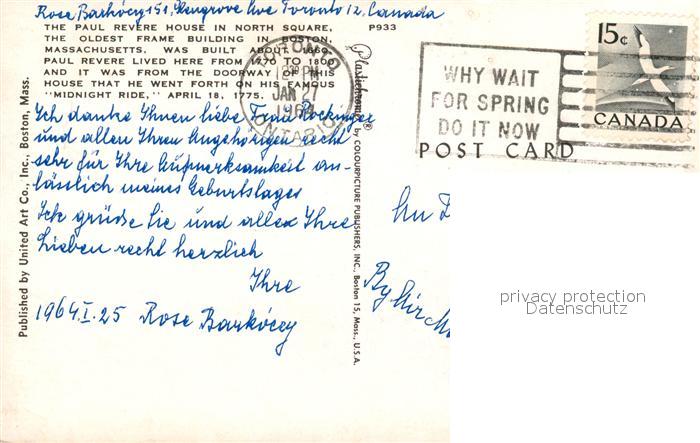 Rose Barkóczy 151, Glengrove Ave Toronto 12, Canada
THE PAUL REVERE HOUSE IN NORTH SQUARE, P933
THE OLDEST FRAME BUILDING IN BOSTON,
MASSACHUSETTS, WAS BUILT ABOUT 1660.
PAUL REVERE LIVED HERE FROM 1770 TO 1800
AND IT WAS FROM THE DOORWAY OF THIS
HOUSE THAT HE WENT FORTH ON HIS FAMOUS
"MIDNIGHT RIDE," APRIL 18, 1775.
Ich danke Ihnen liebe Frau Rockinger
und allen Ihren Angehörigen recht
sehr für Ihre Aufmerksamkeit an-
lässlich meines Geburtstages
Ich grüße Sie und alle Ihre
Lieben recht herzlich
Ihre
1964.I.25 Rose Barkóczy
Published by United Art Co., Inc., Boston, Mass.
Plastichrome® by COLOURPICTURE PUBLISHERS, INC., Boston 15, Mass., U.S.A.
TORONTO
PM
JAN 27
1964
ONTARIO
WHY WAIT
FOR SPRING
DO IT NOW
15¢
CANADA
POST CARD
An
privacy protection
Datenschutz